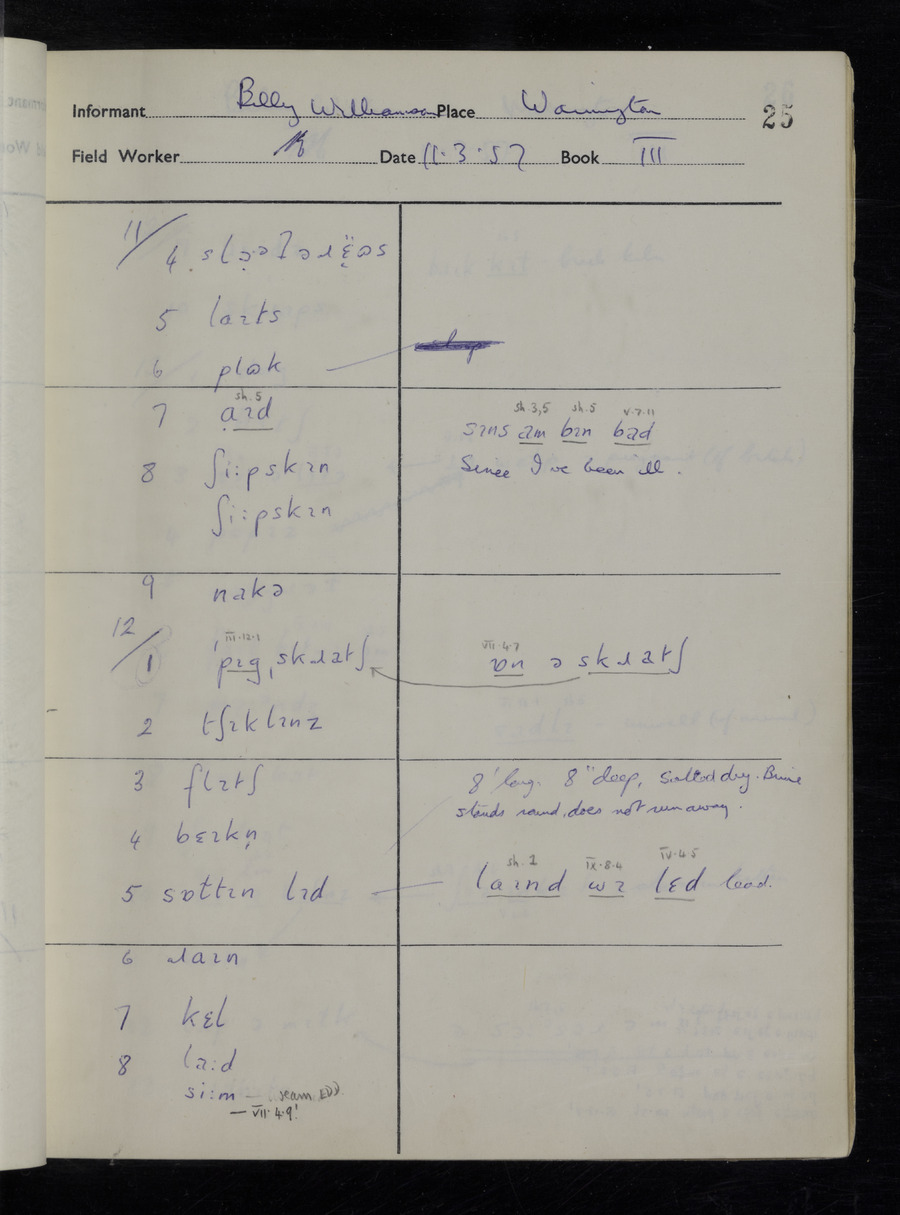 Informant Billy Williamson Place Warrington 25
Field Worker Date 11·3·57 Book III
11/
4
5 laɪts
6 plʊk
sh. 5
7 aɪd
sh. 3,5 sh. 5 V·7·11
sɪns am bɪn bad
8 ʃi:pskɪn
Since I've been ill.
ʃi:pskɪn
9 nakə
12/
III·12·1
1 ˈpɪgˌskɹatʃ
VII·4·7
ɒn ə skɹatʃ
2 tʃɪklɪnz
3 flɪtʃ
8' long. 8" deep, salted dry. Brine
stands round, does not run away.
4 bɛɪkn̩
sh. 1 IX·8·4 IV·4·5
5 sɒttɪn lɪd
laɪnd wɪ lɛd lead.
6 ɹaɪn
7 kɛl
8 la:d
si:m — seam EDD.
— VII·4·9!